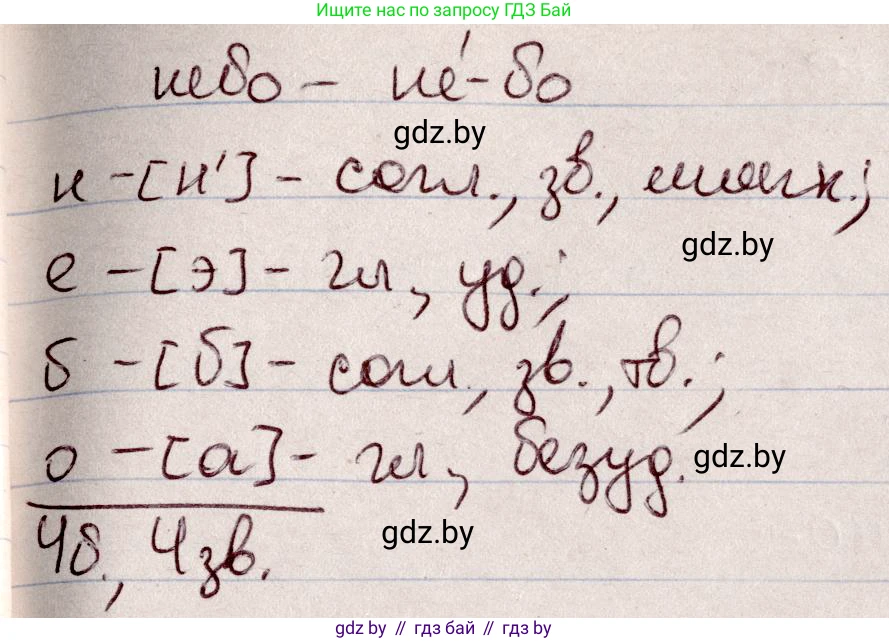 Ищите нас по запросу ГДЗ Бай
небо – не́-бо
gdz.by
н – [н'] – согл., зв., мягк.;
gdz.by
е – [э] – гл, уд.;
б – [б] – согл., зв., тв.;
о – [а] – гл, безуд.
gdz.by
4б., 4зв.
gdz.by
gdz by // гдз бай // гдз by